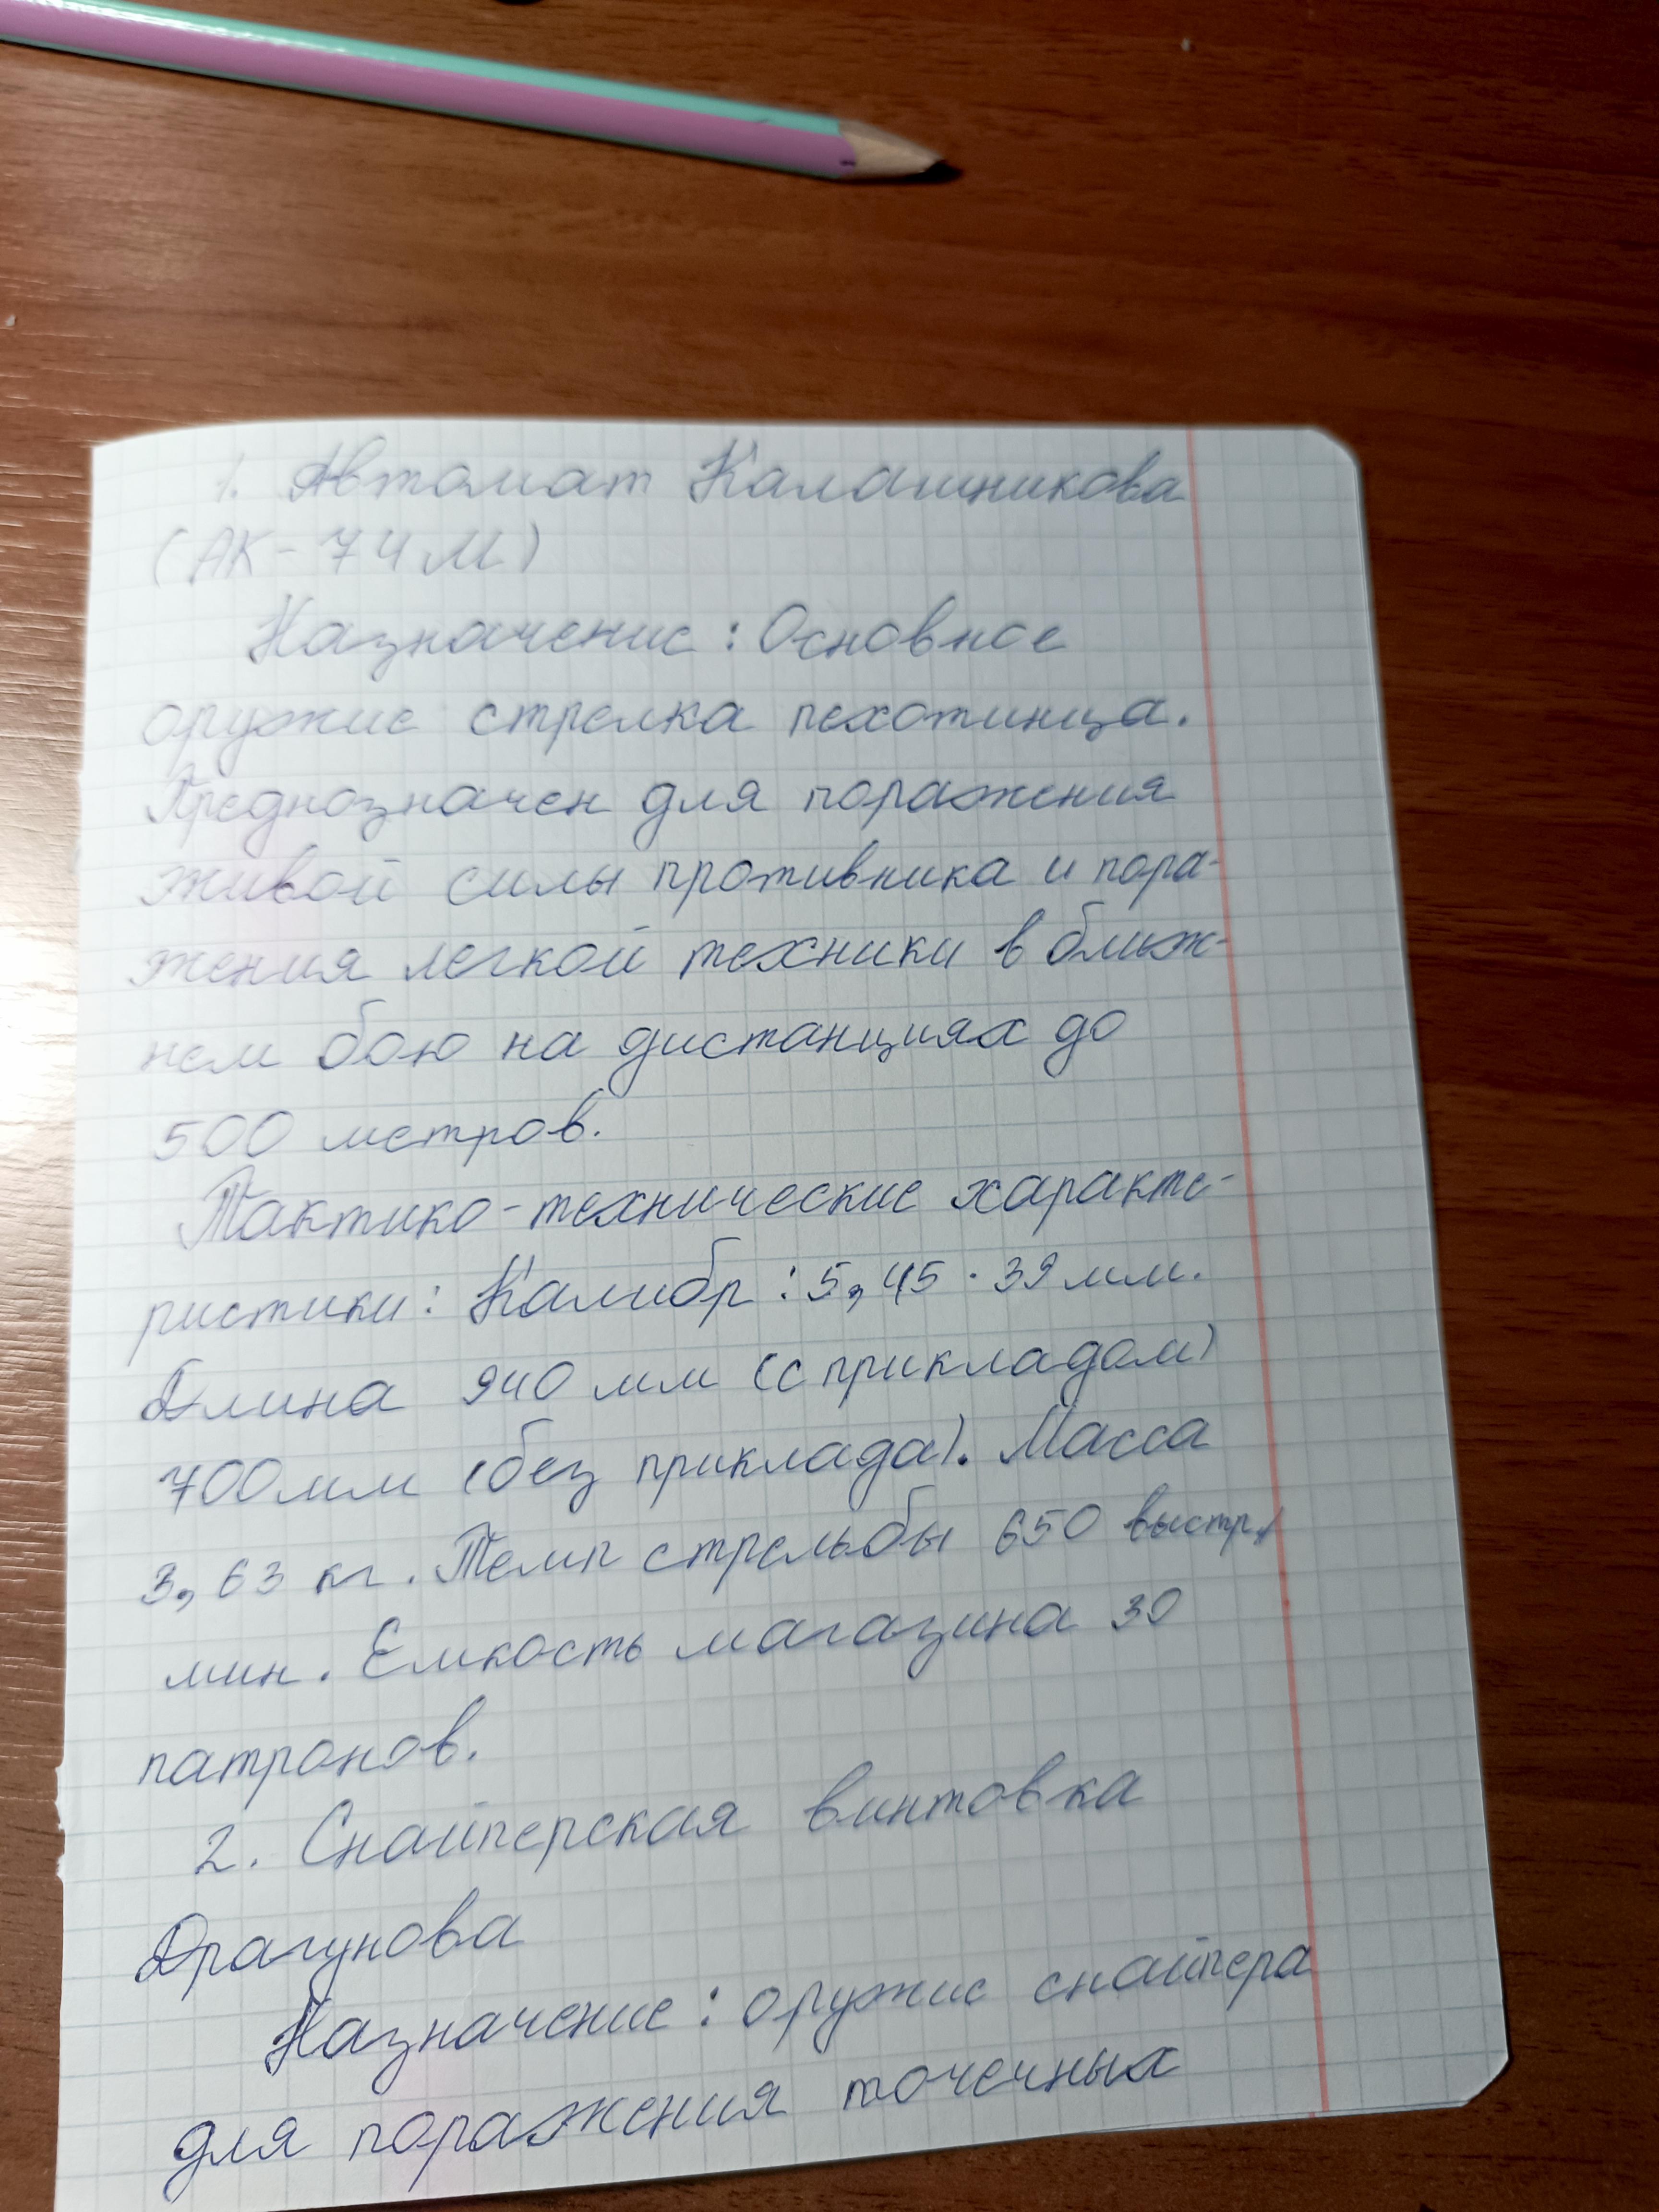 1. Автомат Калашникова
(АК-74М)
Назначение: Основное
оружие стрелка пехотинца.
Преднозначен для поражения
живой силы противника и пора-
жения легкой техники в ближ-
нем бою на дистанциях до
500 метров.
Тактико-технические характе-
ристики: Калибр: 5,45·39мм.
Длина 940 мм (с прикладом)
700мм (без приклада). Масса
3,63 кг. Темп стрельбы 650 выстр./
мин. Емкость магазина 30
патронов.
2. Снайперская винтовка
Драгунова
Назначение: оружие снайпера
для поражения точечных